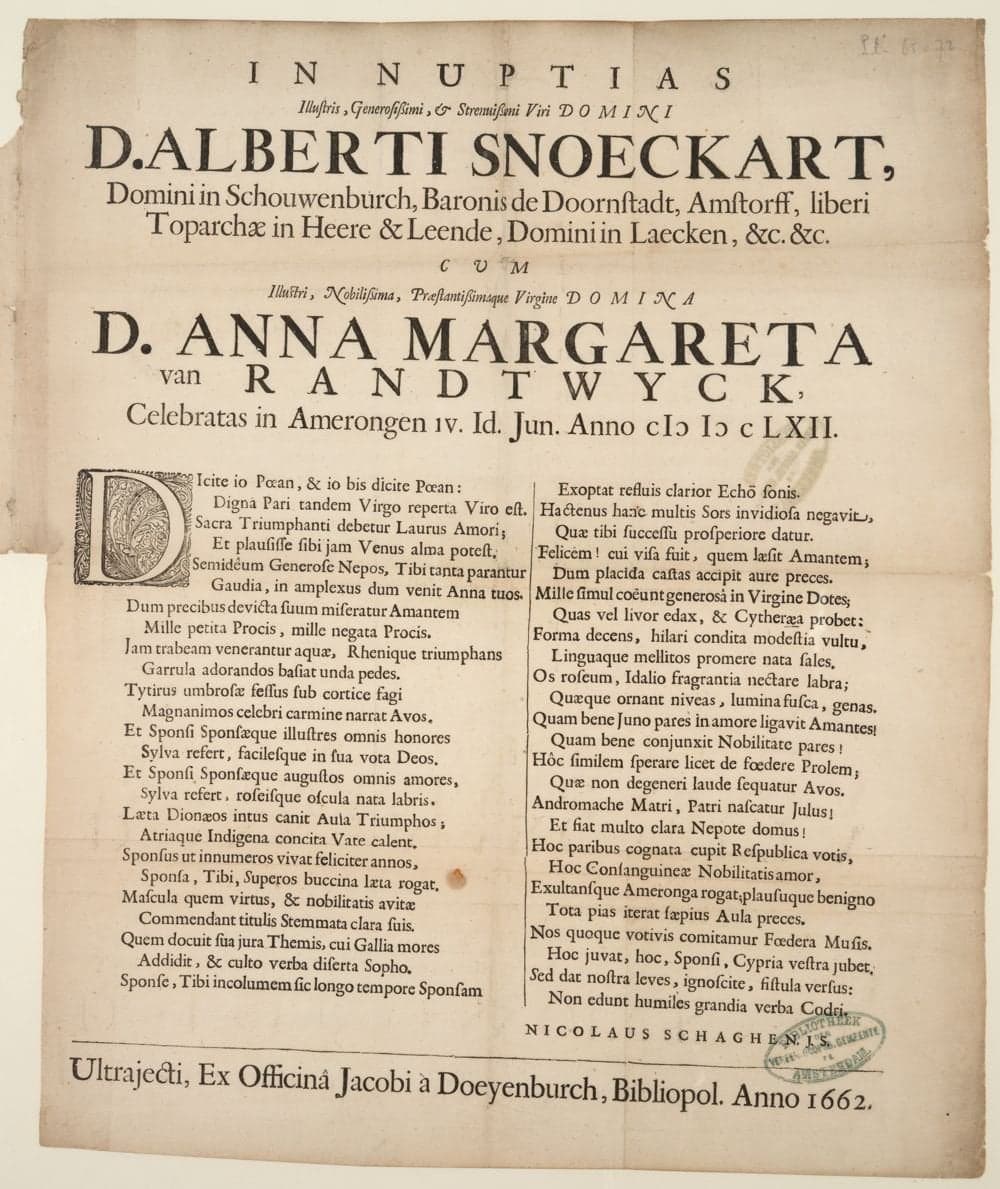 IN NUPTIAS
Illuſtris, Generoſiſſimi, & Strenuiſſimi Viri DOMINI
D. ALBERTI SNOECKART,
Domini in Schouwenburch, Baronis de Doornſtadt, Amſtorff, liberi
Toparchæ in Heere & Leende, Domini in Laecken, &c. &c.
CVM
Illuſtri, Nobiliſſima, Præſtantiſſimaque Virgine DOMINA
D. ANNA MARGARETA
van RANDTWYCK,
Celebratas in Amerongen IV. Id. Jun. Anno cIↄ Iↄ c LXII.
DIcite io Pœan, & io bis dicite Pœan:
Digna Pari tandem Virgo reperta Viro eſt.
Sacra Triumphanti debetur Laurus Amori;
Et plauſiſſe ſibi jam Venus alma poteſt.
Semideum Generoſe Nepos, Tibi tanta parantur
Gaudia, in amplexus dum venit Anna tuos.
Dum precibus devicta ſuum miſeratur Amantem
Mille petita Procis, mille negata Procis.
Jam trabeam venerantur aquæ, Rhenique triumphans
Garrula adorandos baſiat unda pedes.
Tytirus umbroſæ feſſus ſub cortice fagi
Magnanimos celebri carmine narrat Avos.
Et Sponſi Sponſæque illuſtres omnis honores
Sylva refert, facileſque in ſua vota Deos.
Et Sponſi Sponſæque auguſtos omnis amores,
Sylva refert, roſeiſque oſcula nata labris.
Læta Dionæos intus canit Aula Triumphos;
Atriaque Indigena concita Vate calent.
Sponſus ut innumeros vivat feliciter annos,
Sponſa, Tibi, Superos buccina læta rogat.
Maſcula quem virtus, & nobilitatis avitæ
Commendant titulis Stemmata clara ſuis.
Quem docuit ſua jura Themis, cui Gallia mores
Addidit, & culto verba diſerta Sopho.
Sponſe, Tibi incolumem ſic longo tempore Sponſam
Exoptat refluis clarior Echô ſonis.
Hactenus hanc multis Sors invidioſa negavit,
Quæ tibi ſucceſſu proſperiore datur.
Felicem! cui viſa fuit, quem læſit Amantem;
Dum placida caſtas accipit aure preces.
Mille ſimul coëunt generosâ in Virgine Dotes;
Quas vel livor edax, & Cytheræa probet:
Forma decens, hilari condita modeſtia vultu,
Linguaque mellitos promere nata ſales.
Os roſeum, Idalio fragrantia nectare labra;
Quæque ornant niveas, lumina fuſca, genas.
Quam bene Juno pares in amore ligavit Amantes!
Quam bene conjunxit Nobilitate pares!
Hôc ſimilem ſperare licet de fœdere Prolem;
Quæ non degeneri laude ſequatur Avos.
Andromache Matri, Patri naſcatur Julus!
Et fiat multo clara Nepote domus!
Hoc paribus cognata cupit Reſpublica votis,
Hoc Conſanguineæ Nobilitatis amor,
Exultanſque Ameronga rogat; plauſuque benigno
Tota pias iterat ſæpius Aula preces.
Nos quoque votivis comitamur Fœdera Muſis.
Hoc juvat, hoc, Sponſi, Cypria veſtra jubet.
Sed dat noſtra leves, ignoſcite, fiſtula verſus:
Non edunt humiles grandia verba Codri.
NICOLAUS SCHAGHENIS.
BIBLIOTHEEK
AMSTERDAM
Ultrajecti, Ex Officinâ Jacobi à Doeyenburch, Bibliopol. Anno 1662.